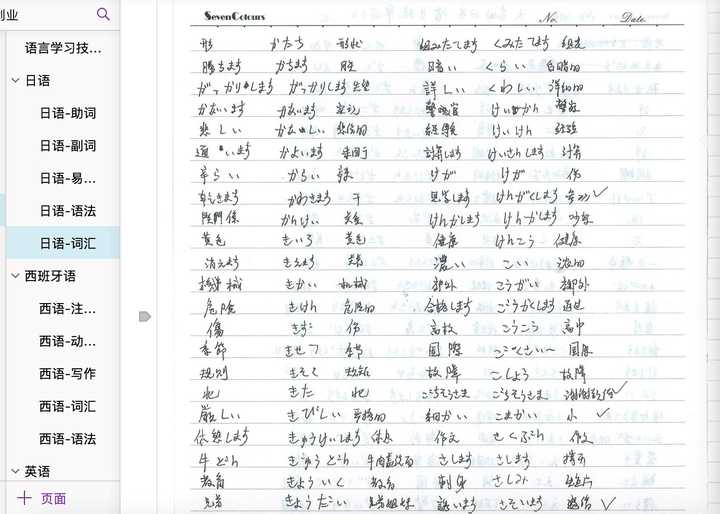 创业
语言学习技...
日语
日语-助词
日语-副词
日语-易...
日语-语法
日语-词汇
西班牙语
西语-注...
西语-动...
西语-写作
西语-词汇
西语-语法
英语
页面
SevenColours No. Date.
形 かたち 形状 組みたてます くみたてます 组装
勝ちます かちます 胜 暗い くらい 白暗的
がっかりします がっかりします 失望 詳しい くわしい 详细的
かないます かないます 实现 警察官 けいかん 警察
悲しい かなしい 悲伤的 経験 けいけん 经验
通います かよいます 計算します けいさんします 计算
辛らい からい 辣 けが けが 伤
乾きます かわきます 干 見学します けんがくします ✓
関係 かんけい 关系 けんかします けんかします 吵架
黄色 きいろ 黄色 健康 けんこう 健康
消えます きえます 濃い こい 浓的
機械 きかい 机械 郊外 こうがい 郊外
危険 きけん 危险的 合格します ごうかくします 通过
傷 きず 伤 高校 こうこう 高中
季節 きせつ 季节 国際 こくさい〜 国际
規則 きそく 规则 故障 こしょう 故障
北 きた 北 ごちそうさま ごちそうさま ✓
厳しい きびしい 严格的 細かい こまかい 小 ✓
休憩します きゅうけいします 休息 作文 さくぶん 作文
牛どん ぎゅうどん 牛肉盖饭 さします さします
教育 きょういく 教育 刺身 さしみ 生鱼片
兄弟 きょうだい 兄弟姐妹 誘います さそいます 邀请 ✓